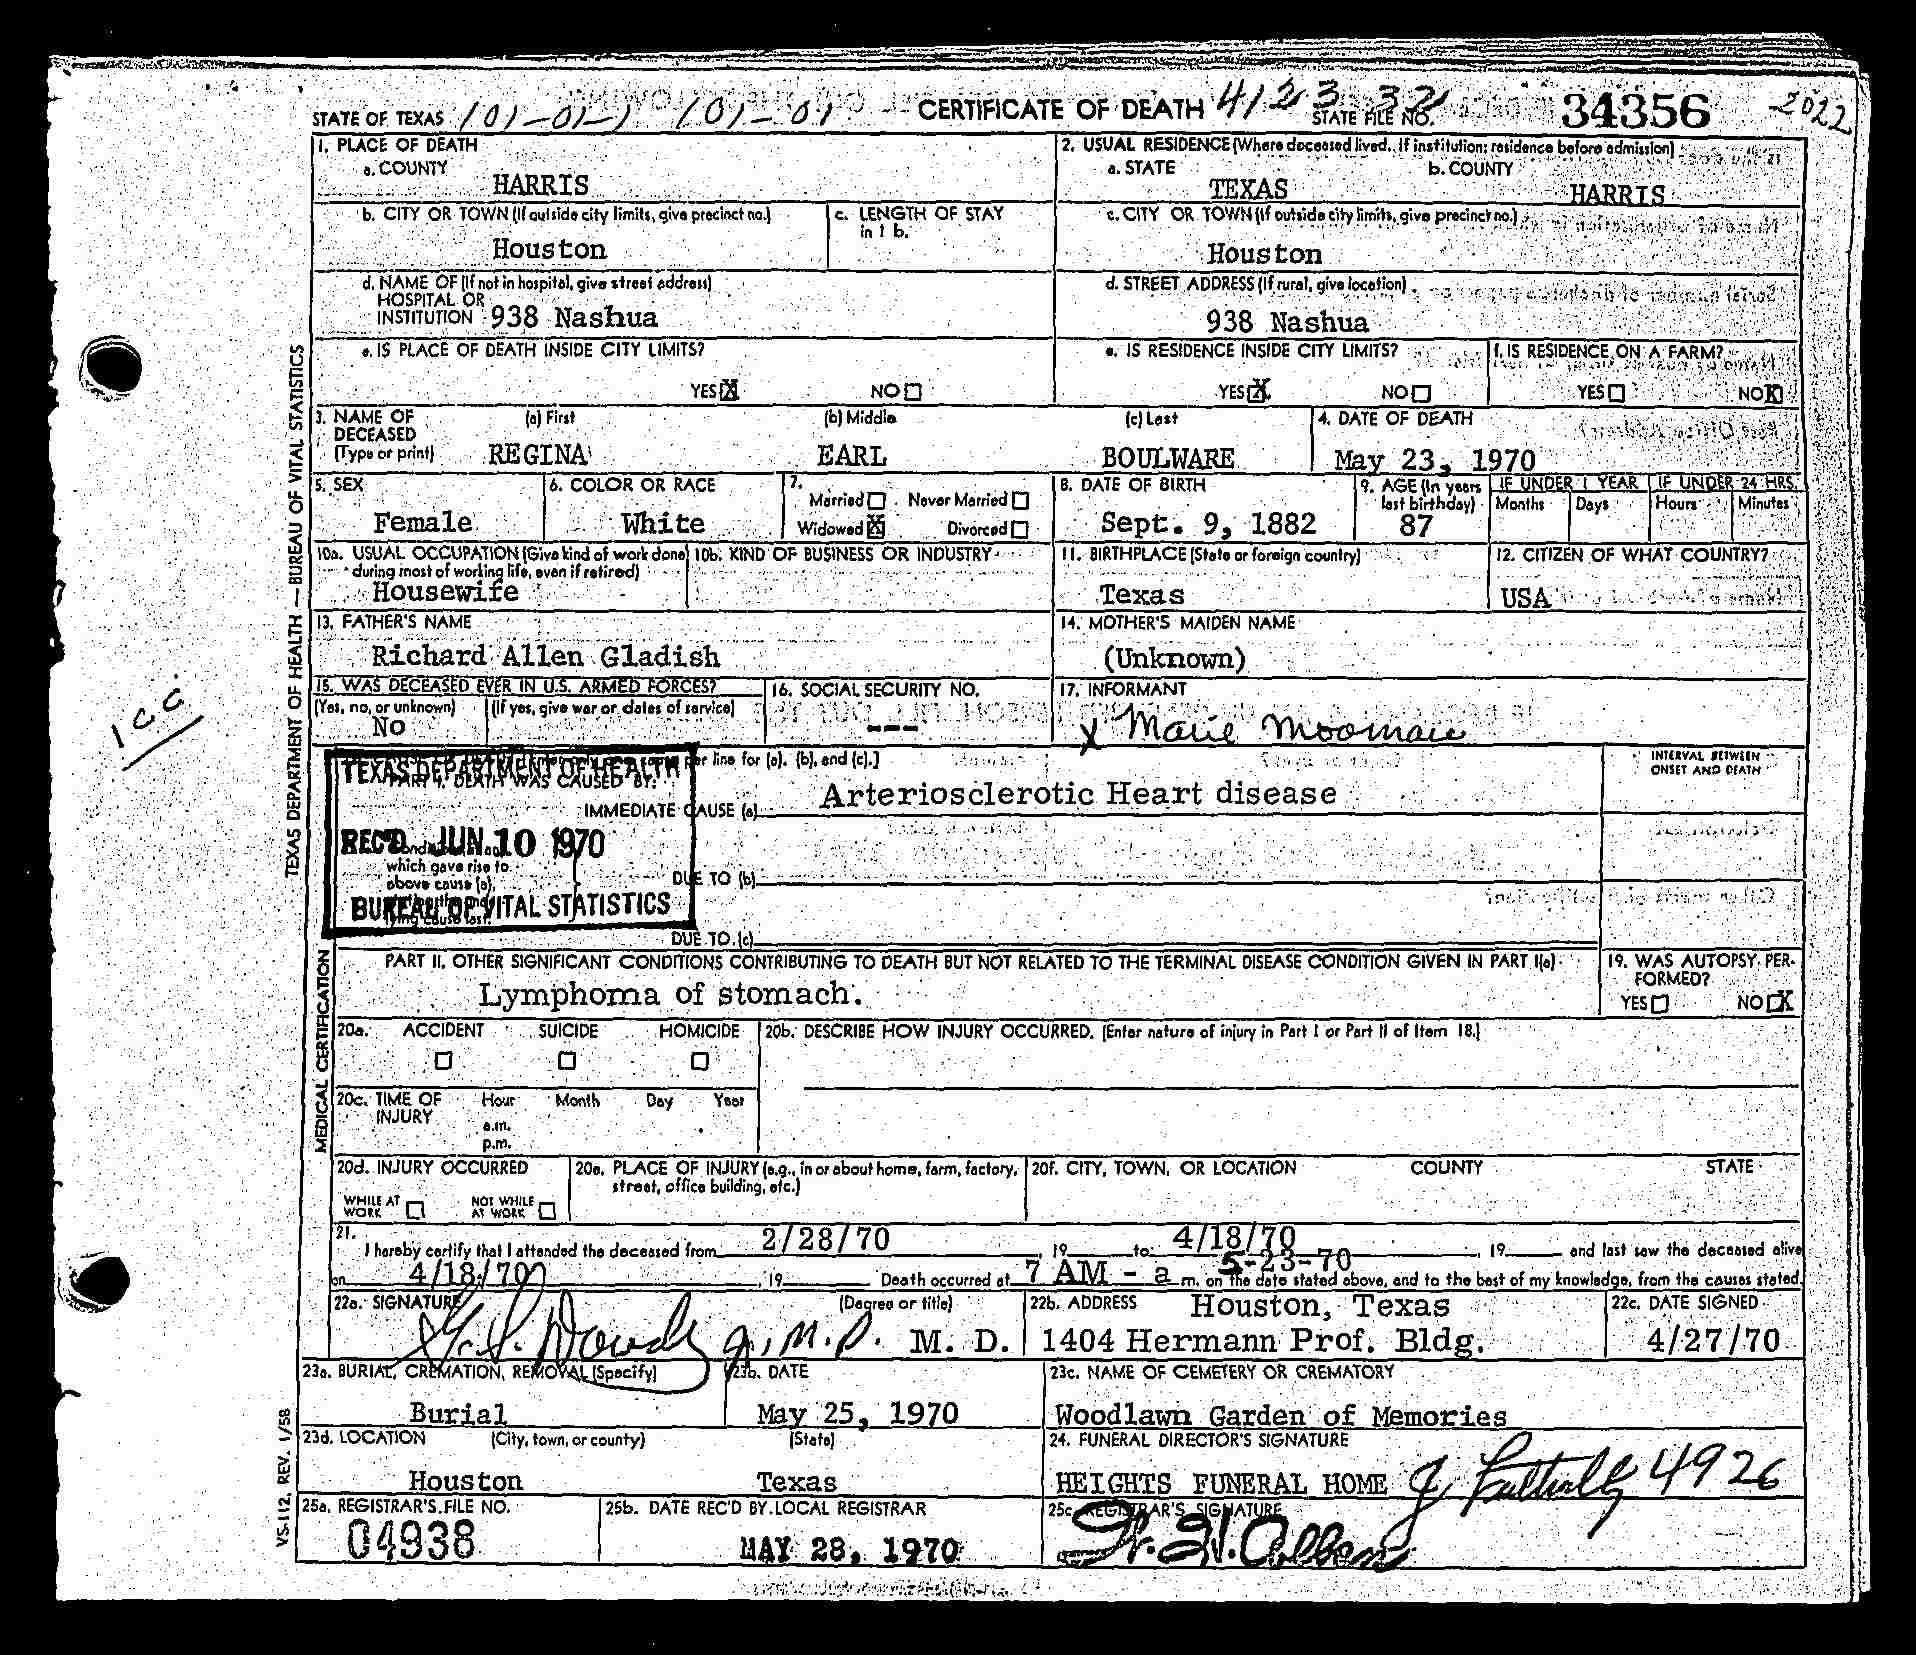 STATE OF TEXAS 101-01-1 101-01 CERTIFICATE OF DEATH 4123 32 STATE FILE NO. 34356 2022
1. PLACE OF DEATH
a. COUNTY
HARRIS
2. USUAL RESIDENCE (Where deceased lived. If institution: residence before admission)
a. STATE
TEXAS
b. COUNTY
HARRIS
b. CITY OR TOWN (If outside city limits, give precinct no.)
Houston
c. LENGTH OF STAY
in 1 b.
c. CITY OR TOWN (If outside city limits, give precinct no.)
Houston
d. NAME OF (If not in hospital, give street address)
HOSPITAL OR
INSTITUTION 938 Nashua
d. STREET ADDRESS (If rural, give location)
938 Nashua
e. IS PLACE OF DEATH INSIDE CITY LIMITS?
YES X NO
e. IS RESIDENCE INSIDE CITY LIMITS?
YES X NO
f. IS RESIDENCE ON A FARM?
YES NO X
3. NAME OF
DECEASED
(Type or print)
(a) First
REGINA
(b) Middle
EARL
(c) Last
BOULWARE
4. DATE OF DEATH
May 23, 1970
5. SEX
Female
6. COLOR OR RACE
White
7.
Married Never Married
Widowed X Divorced
8. DATE OF BIRTH
Sept. 9, 1882
9. AGE (In years
last birthday)
87
IF UNDER 1 YEAR
Months Days
IF UNDER 24 HRS.
Hours Minutes
10a. USUAL OCCUPATION (Give kind of work done
during most of working life, even if retired)
Housewife
10b. KIND OF BUSINESS OR INDUSTRY
11. BIRTHPLACE (State or foreign country)
Texas
12. CITIZEN OF WHAT COUNTRY?
USA
13. FATHER'S NAME
Richard Allen Gladish
14. MOTHER'S MAIDEN NAME
(Unknown)
15. WAS DECEASED EVER IN U.S. ARMED FORCES?
(Yes, no, or unknown) (If yes, give war or dates of service)
No
16. SOCIAL SECURITY NO.
---
17. INFORMANT
x Marie Moomaw
per line for (a), (b), and (c).]
TEXAS DEPARTMENT OF HEALTH
PART I. DEATH WAS CAUSED BY:
IMMEDIATE CAUSE (a) Arteriosclerotic Heart disease
INTERVAL BETWEEN
ONSET AND DEATH
REC'D JUN 10 1970
which gave rise to
above cause (a),
DUE TO (b)
BUREAU OF VITAL STATISTICS
lying cause last.
DUE TO (c)
PART II. OTHER SIGNIFICANT CONDITIONS CONTRIBUTING TO DEATH BUT NOT RELATED TO THE TERMINAL DISEASE CONDITION GIVEN IN PART I(a)
Lymphoma of stomach.
19. WAS AUTOPSY PER-
FORMED?
YES NO X
20a. ACCIDENT SUICIDE HOMICIDE
20b. DESCRIBE HOW INJURY OCCURRED. (Enter nature of injury in Part I or Part II of Item 18.)
20c. TIME OF
INJURY
Hour Month Day Year
a.m.
p.m.
20d. INJURY OCCURRED
WHILE AT
WORK
NOT WHILE
AT WORK
20e. PLACE OF INJURY (e.g., in or about home, farm, factory,
street, office building, etc.)
20f. CITY, TOWN, OR LOCATION COUNTY STATE
21.
I hereby certify that I attended the deceased from 2/28/70, 19 to 4/18/70, 19 and last saw the deceased alive
on 4/18/70, 19 Death occurred at 7 AM - a m. on the date stated above, and to the best of my knowledge, from the causes stated.
5-23-70
22a. SIGNATURE (Degree or title)
jr, M.D. M. D.
22b. ADDRESS Houston, Texas
1404 Hermann Prof. Bldg.
22c. DATE SIGNED
4/27/70
23a. BURIAL, CREMATION, REMOVAL (Specify)
Burial
23b. DATE
May 25, 1970
23c. NAME OF CEMETERY OR CREMATORY
Woodlawn Garden of Memories
23d. LOCATION (City, town, or county) (State)
Houston Texas
24. FUNERAL DIRECTOR'S SIGNATURE
HEIGHTS FUNERAL HOME 4926
25a. REGISTRAR'S FILE NO.
04938
25b. DATE REC'D BY LOCAL REGISTRAR
MAY 28, 1970
25c. REGISTRAR'S SIGNATURE
TEXAS DEPARTMENT OF HEALTH — BUREAU OF VITAL STATISTICS
MEDICAL CERTIFICATION
VS-112, REV. 1/58